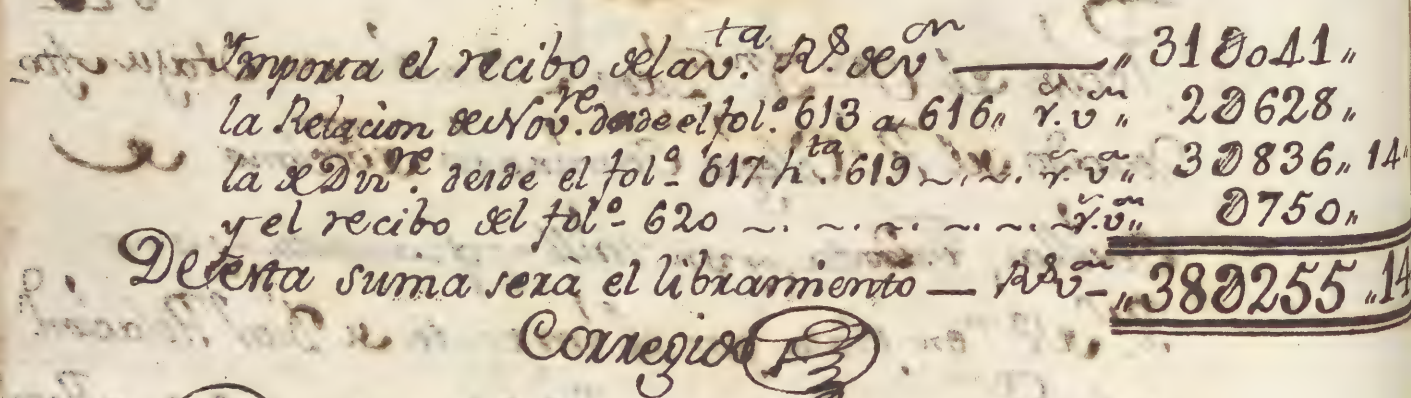 Ymporta el recibo dela v.ta R.s de v.on ——— „ 31D041„
la Relacion de Nov.re desde el fol.º 613 a 616„ r.s v.on „ 2D628„
la de Diz.re desde el fol.º 617 h.ta 619 ~.~. r.s v.on „ 3D836„ 14„
y el recibo del fol.º 620 ~. ~. ~. ~. ~. r.s v.on „ D750„
De esta suma serà el libramiento — R.s v.on „ 38D255 „14
Corregido